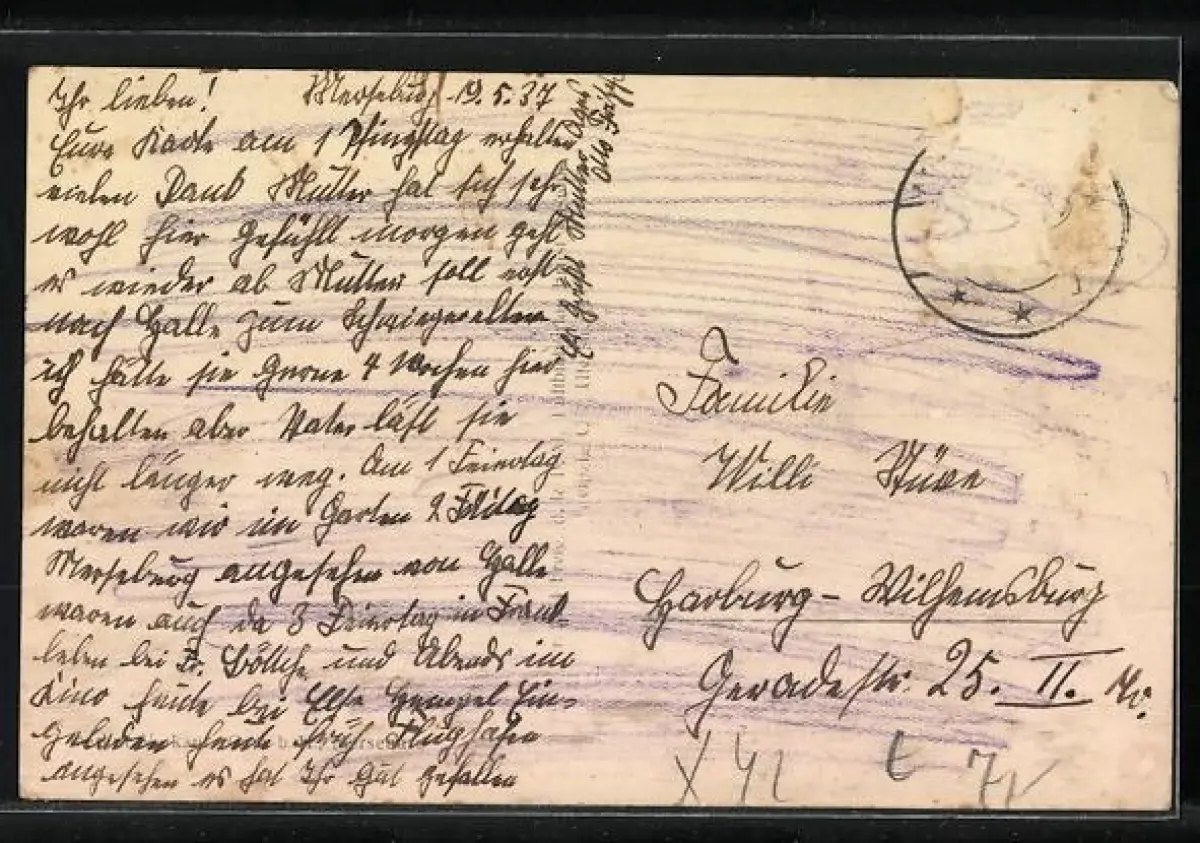 Ihr lieben! Merseburg 19.5.37
Eure Karte am 1 Pfingstag erhalten
vielen Dank Mutter hat sich sehr
wohl hier gefühlt morgen geht
es wieder ab Mutter soll erst
nach Halle zum Schwiegereltern
ich hätte sie gerne 4 Wochen hier
behalten aber Vater läßt sie
nicht länger weg. Am 1 Feiertag
waren wir im Garten 2 Feiertag
Merseburg angesehen von Halle
waren auch da 3 Feiertag in Frank-
leben bei Fr. Böttche und Abends im
Kino heute bei Else Hempel Ein-
geladen heute früh Flughafen
angesehen es hat Ihr gut gefallen
Mutter
Otto
Familie
Willi Stüve
Harburg-Wilhemsburg
Geradestr. 25. II.